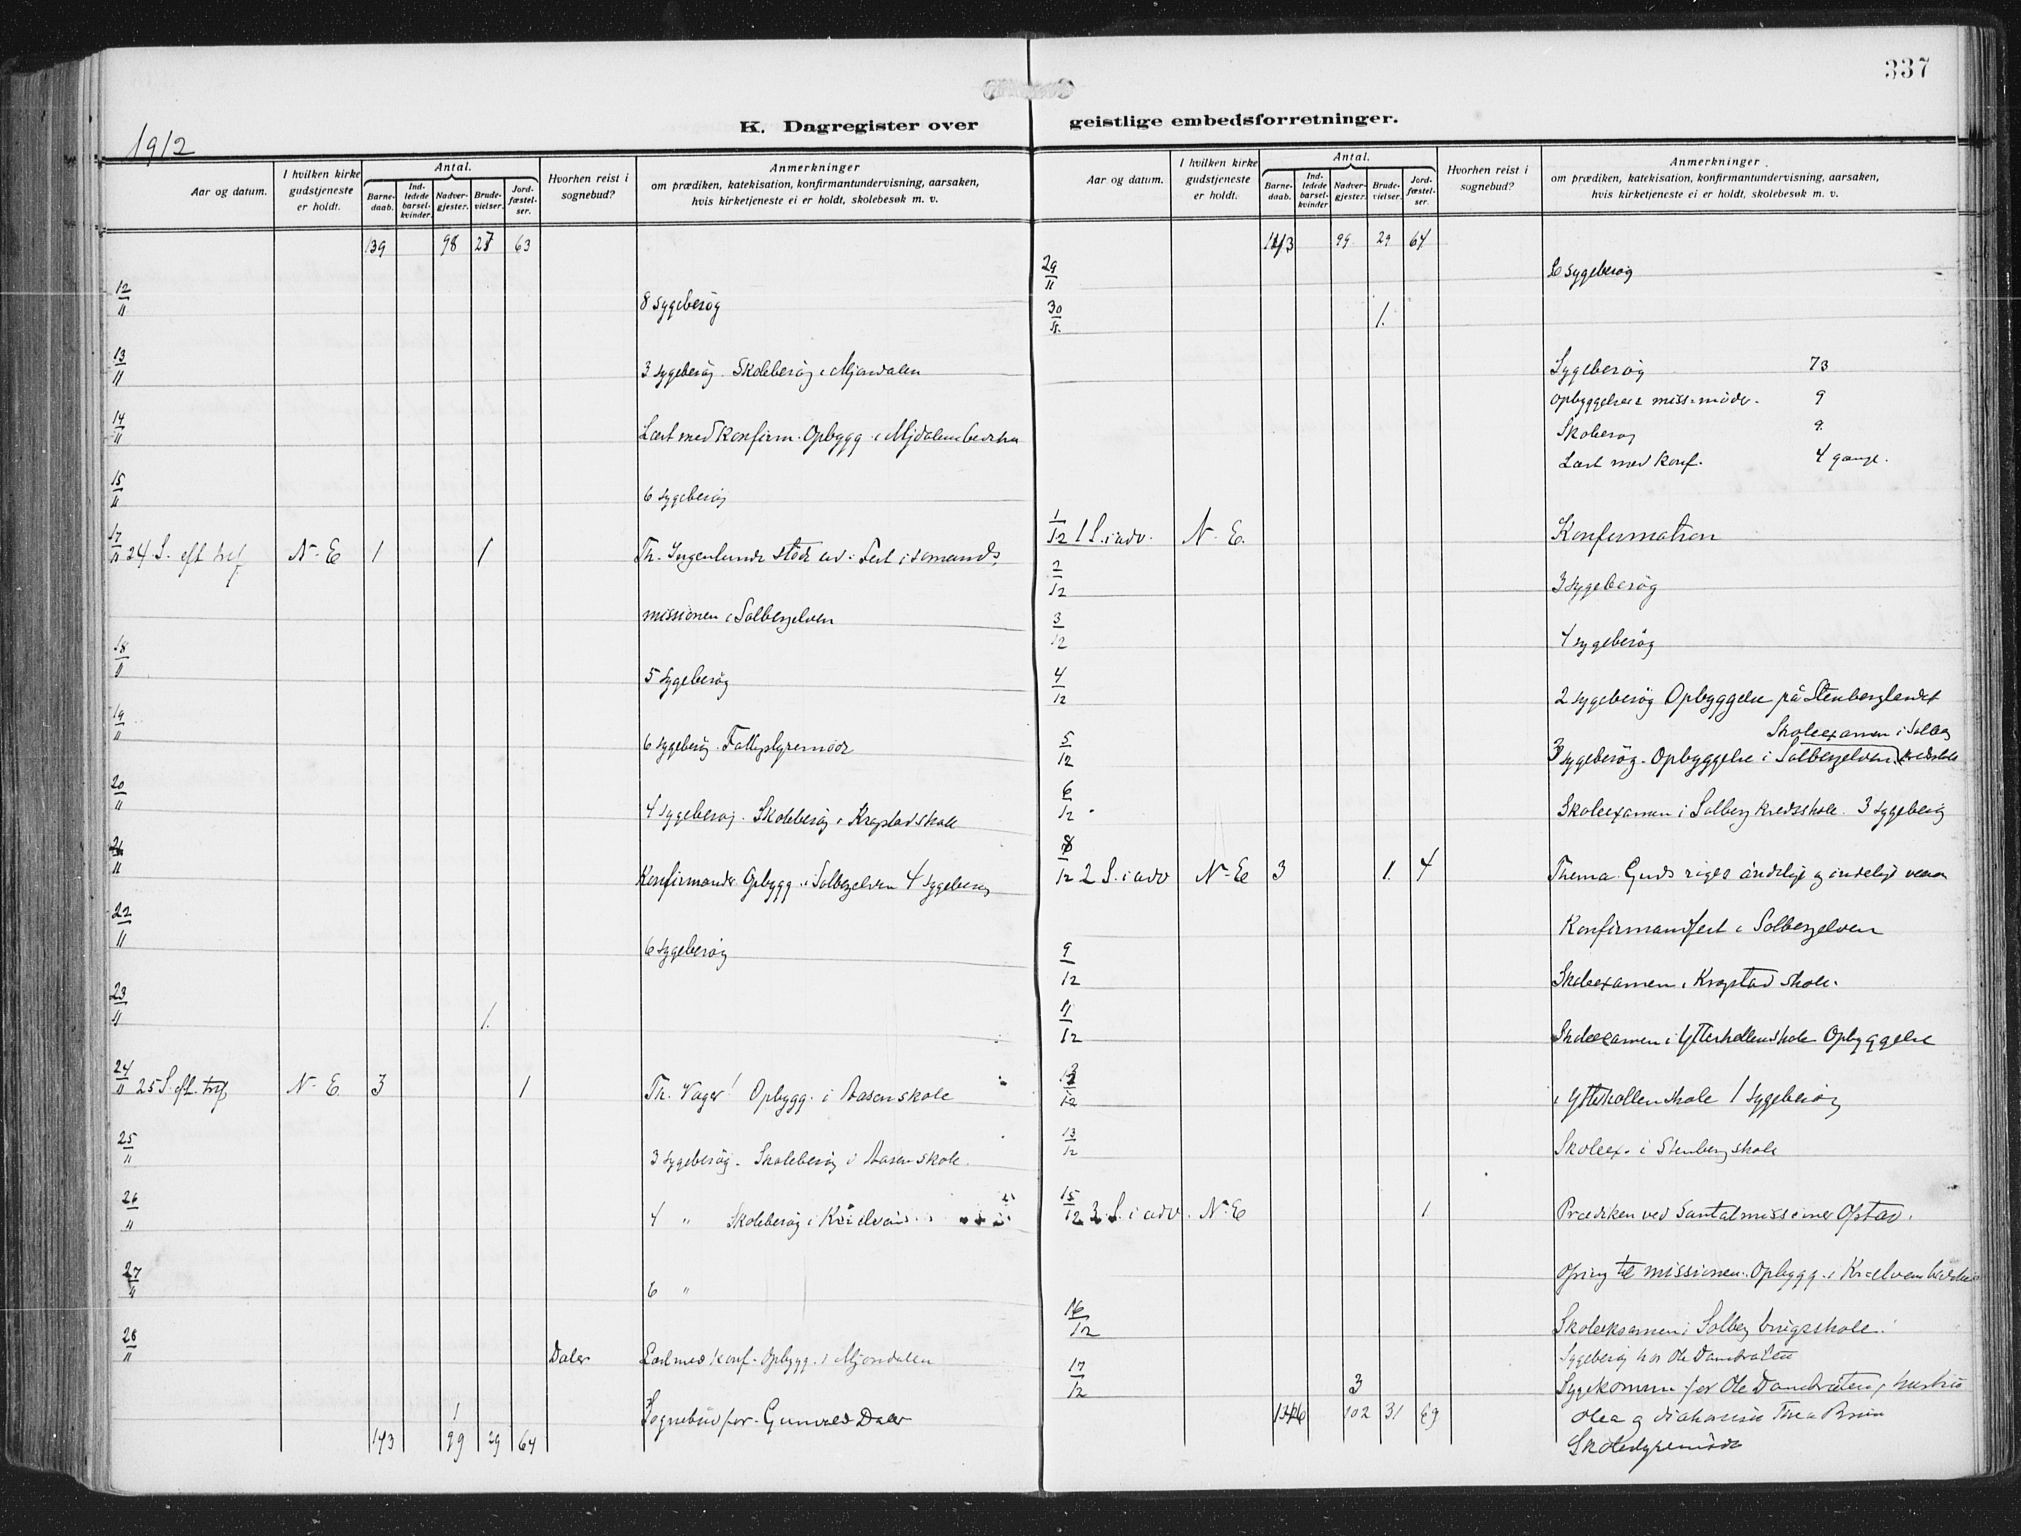 337
1912
K. Dagregister over geistlige embedsforretninger.
Aar og datum.
I hvilken kirke gudstjeneste er holdt.
Antal.
Barne-daab.
Ind-ledede barsel-kvinder
Nadver-gjester.
Brude-vielser.
Jord-fæstel-ser.
Hvorhen reist i sognebud?
Anmerkninger
om prædiken, katekisation, konfirmantundervisning, aarsaken,
hvis kirketjeneste ei er holdt, skolebesøk m. v.
139 98 27 63
12/11 8 Sygebesøg
13/11 3 sygebesøg. Skolebesøg i Mjøndalen
14/11 Læst med Konfirm. Opbygg. i
15/11 6 sygebesøg
17/11 24 S. eft. tref N-E 1 1 Th. i
missionen i Solbergelven
18/11 5 sygebesøg
19/11 6 sygebesøg.
20/11 4 sygebesøg. Skolebesøg i Krogstadskole
21/11 Konfirmander Opbygg. i Solbergelven 4 sygebesøg
22/11 6 sygebesøg
23/11 1.
24/11 25 S. eft. tref N-E. 3 1 Th. Vager! Opbygg. i Aasen skole
25/11 3 sygebesøg. Skolebesøg i Aasen skole.
26/11 4 " Skolebesøg i
27/11 6 "
28/11 Daler Læst med Konf. Opbygg. i Mjøndalen
1 Sognebud for Daler
143 99 29 64
Aar og datum.
I hvilken kirke gudstjeneste er holdt.
Antal.
Barne-daab.
Ind-ledede barsel-kvinder
Nadver-gjester.
Brude-vielser.
Jord-fæstel-ser.
Hvorhen reist i sognebud?
Anmerkninger
om prædiken, katekisation, konfirmantundervisning, aarsaken,
hvis kirketjeneste ei er holdt, skolebesøk m. v.
143 99 29 64
29/11 6 sygebesøg
30/11. 1.
Sygebesøg 73
opbyggelser miss. møder. 9
Skolebesøg 9
Læst med Konf. 4 gange.
1/12 1 S. i adv. N-E. Konfirmation
2/12 3 sygebesøg
3/12 4 sygebesøg
4/12 2 sygebesøg Opbyggelse på
Skoleexamen i Solberg
5/12 3 sygebesøg. Opbyggelse i Solbergelven. Kredsskole
6/12 Skoleexamen i Solberg Kredsskole. 3 sygebesøg
8/12 2 S. i adv N-E 3 1. 4 Thema. Guds riges åndelige og
Konfirmantfest i Solbergelven
9/12 Skoleexamen i Krogstad skole.
11/12 Skoleexamen i Ytterkollenskole Opbyggelse
12/12 i Ytterkollenskole 1 sygebesøg
13/12 Skoleex. i Stenberg skole
15/12 3. S. i adv. N-E 1 Prædiken ved Santalmissionær
Ofring til missionen. Opbygg. i
16/12 Skoleeksamen i Solberg brugsskole.
Sygebesøg hos Ole
17/12 3 Sygekomm for Ole hustru
146 102 31 69 Olea og Thea
Skolestyremøde